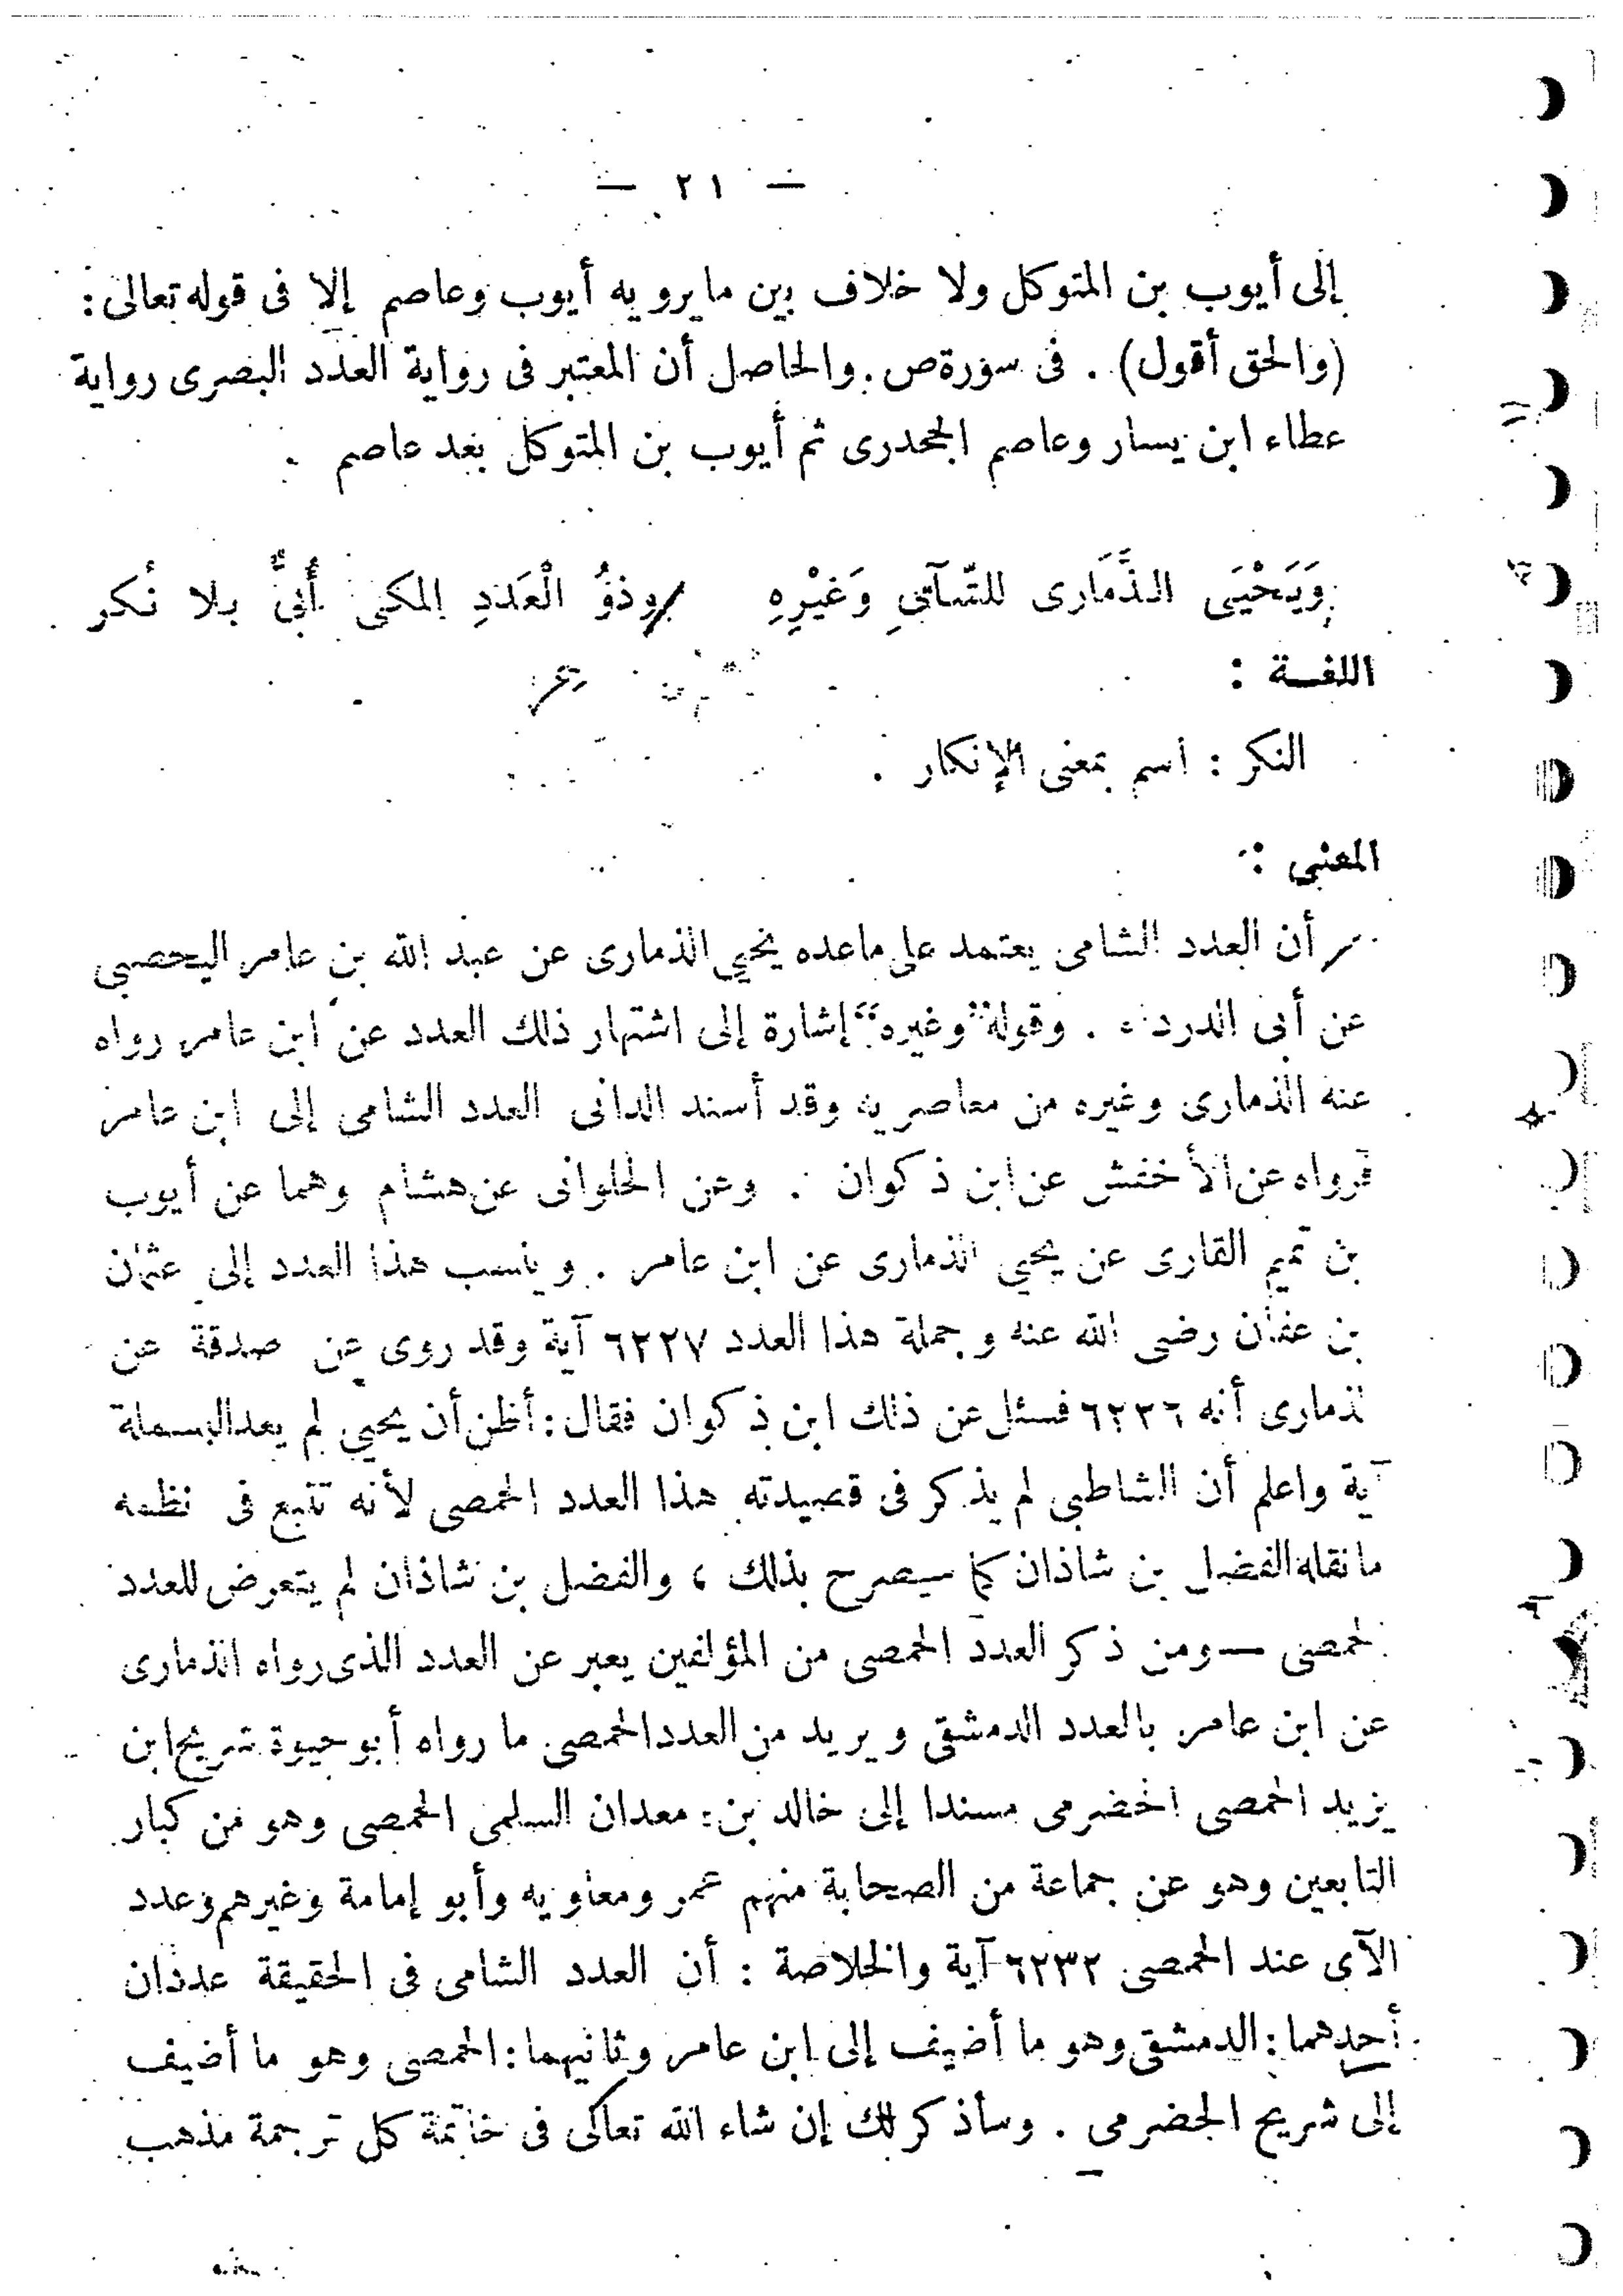 — ٢١ —
إلى أيوب بن المتوكل ولا خلاف بين مايرويه أيوب وعاصم إلا فى قوله تعالى:
(والحق أقول) . فى سورة ص. والحاصل أن المعتبر فى رواية العدد البصرى رواية
عطاء ابن يسار وعاصم الجحدرى ثم أيوب بن المتوكل بعد عاصم .
وَيَحْيَى الذَّمَارى للشَّآمِىِ وَغَيْرِهِ وذُو الْعَدَدِ المكى أُبَىٌّ بلا نُكر
اللغــة :
النكر : اسم بمعنى الإنكار .
المعنى :
أن العدد الشامى يعتمد على ماعده يحيى الذمارى عن عبد الله بن عامر اليحصبى
عن أبى الدرداء . وقوله "وغيره" إشارة إلى اشتهار ذلك العدد عن ابن عامر رواه
عنه الذمارى وغيره من معاصريه وقد أسند الدانى العدد الشامى إلى ابن عامر
فرواه عن الأخفش عن ابن ذكوان . وعن الحلوانى عن هشام وهما عن أيوب
بن تميم القارى عن يحيى الذمارى عن ابن عامر . وينسب هذا العدد إلى عثمان
بن عفان رضى الله عنه وجملة هذا العدد ٦٢٢٧ آية وقد روى عن صدقة عن
لذمارى أنه ٦٢٢٦ فسئل عن ذلك ابن ذكوان فقال : أظن أن يحيى لم يعد البسملة
آية واعلم أن الشاطبى لم يذكر فى قصيدته هذا العدد الحمصى لأنه تتبع فى نظمه
مانقله الفضل بن شاذان كما سيصرح بذلك ، والفضل بن شاذان لم يتعرض للعدد
لحمصى — ومن ذكر العدد الحمصى من المؤلفين يعبر عن العدد الذى رواه الذمارى
عن ابن عامر بالعدد الدمشقى ويريد من العدد الحمصى ما رواه أبو حيوة شريح ابن
يزيد الحمصى الحضرمى مسندا إلى خالد بن معدان السلمى الحمصى وهو من كبار
التابعين وهو عن جماعة من الصحابة منهم عمر ومعاويه وأبو إمامة وغيرهم وعدد
الآى عند الحمصى ٦٢٣٢ آية والخلاصة : أن العدد الشامى فى الحقيقة عددان
أحدهما : الدمشقى وهو ما أضيف إلى ابن عامر وثانيهما : الحمصى وهو ما أضيف
إلى شريح الحضرمى . وسأذكر لك إن شاء الله تعالى فى خاتمة كل ترجمة مذهب